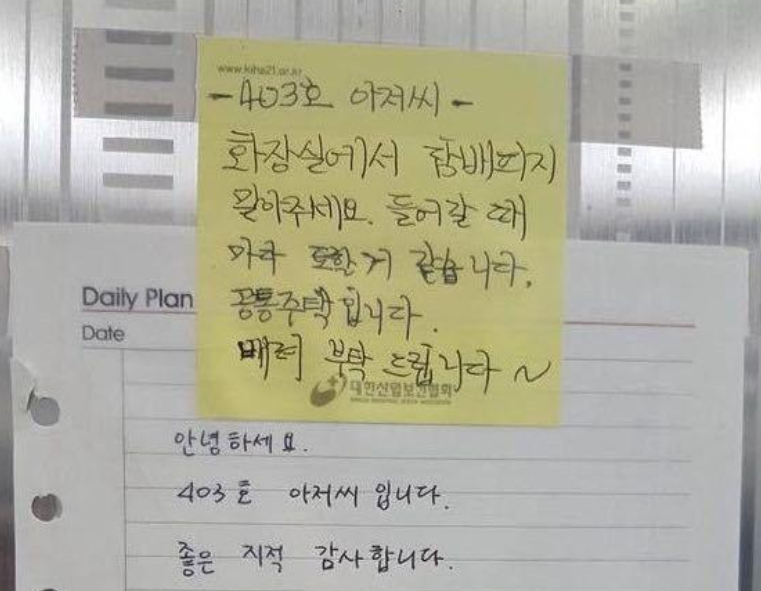 www.kiha21.or.kr
-403호 아저씨-
화장실에서 담배피지
말아주세요. 들어갈 때
마다 토할거 같습니다.
공통주택입니다.
배려 부탁 드립니다 ~
대한산업보건협회
Daily Plan
Date
안녕하세요.
403호 아저씨 입니다.
좋은 지적 감사합니다.